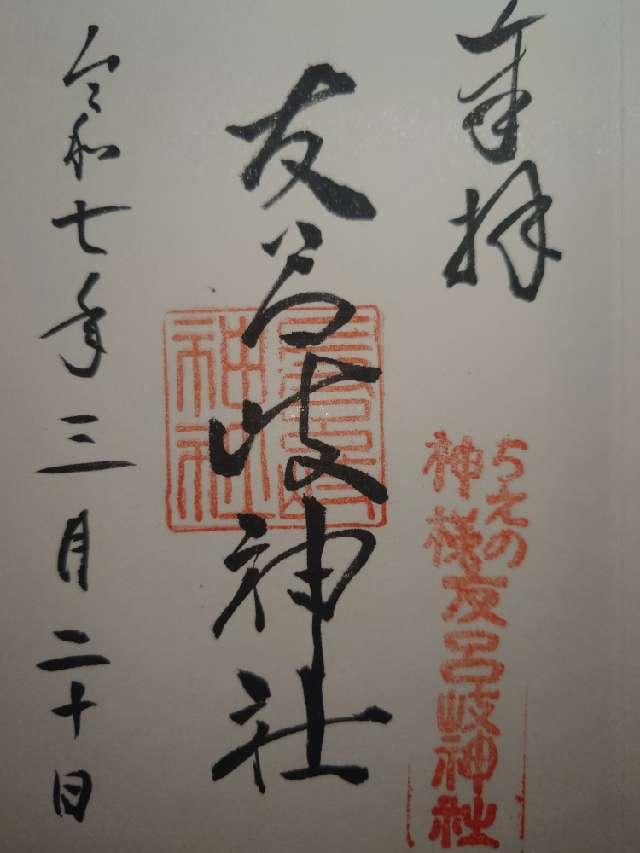 奉拝
ちえの
神様
友呂岐神社
友呂岐神社
令和七年三月二十日